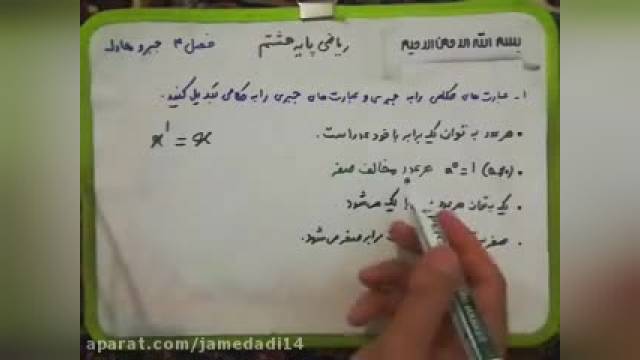 بسم الله الرحمن الرحیم
ریاضی پایه هشتم
فصل ۴ جبر و معادله
۱- عبارت های کلامی را به جبری و عبارت های جبری را به کلامی تبدیل کنید.
• هر عدد به توان یک برابر با خود عدد است. x¹ = x
• a⁰ = 1 (a≠0) هر عدد مخالف صفر
• یک به توان هر عدد یک می شود
• صفر به برابر صفر می شود.
aparat.com/jamedadi14